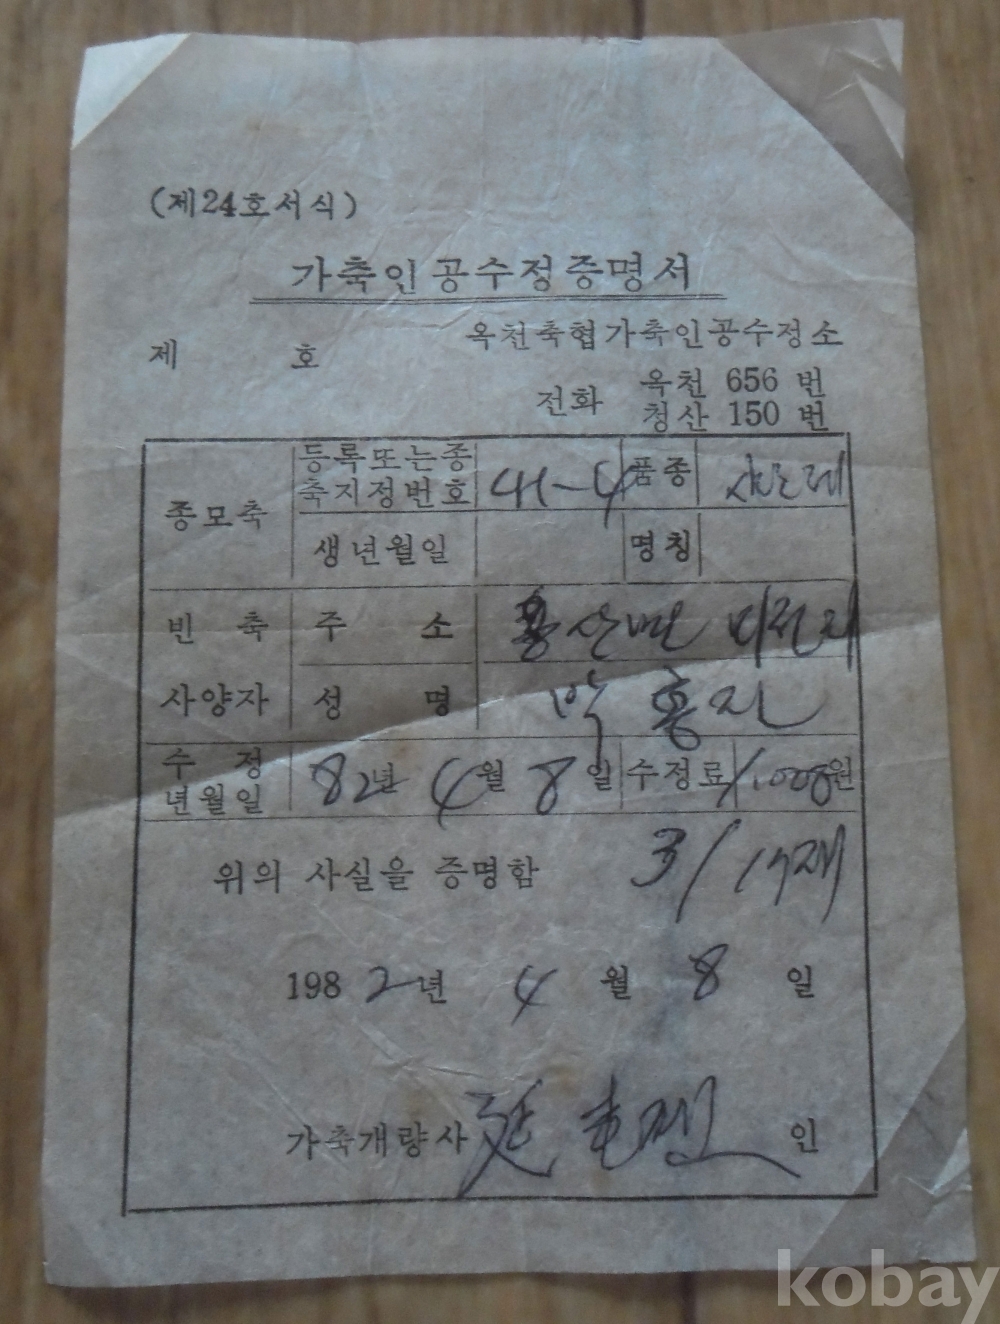 (제24호서식)
가축인공수정증명서
제 호 옥천축협가축인공수정소
전화 옥천 656 번
청산 150 번
종모축 등록또는종축지정번호 41-4 품종 샤로레
생년월일 명칭
빈축 주소
사양자 성명 박 홍진
수정년월일 82년 4월 8일 수정료 원
위의 사실을 증명함
1982년 4월 8일
가축개량사 인
kobay